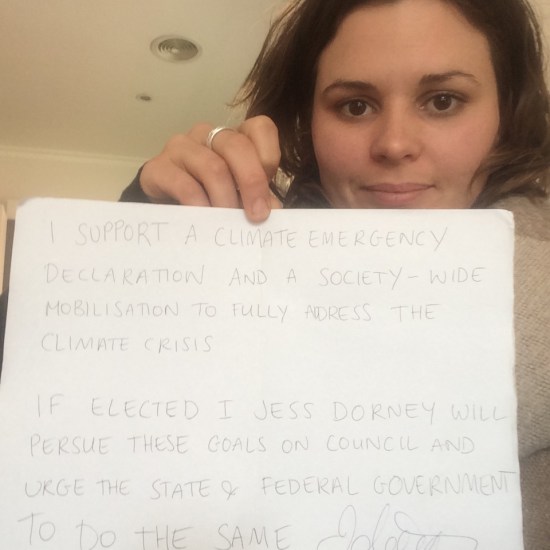 I SUPPORT A CLIMATE EMERGENCY
DECLARATION AND A SOCIETY-WIDE
MOBILISATION TO FULLY ADRESS THE
CLIMATE CRISIS
IF ELECTED I JESS DORNEY WILL
PERSUE THESE GOALS ON COUNCIL AND
URGE THE STATE & FEDERAL GOVERNMENT
TO DO THE SAME